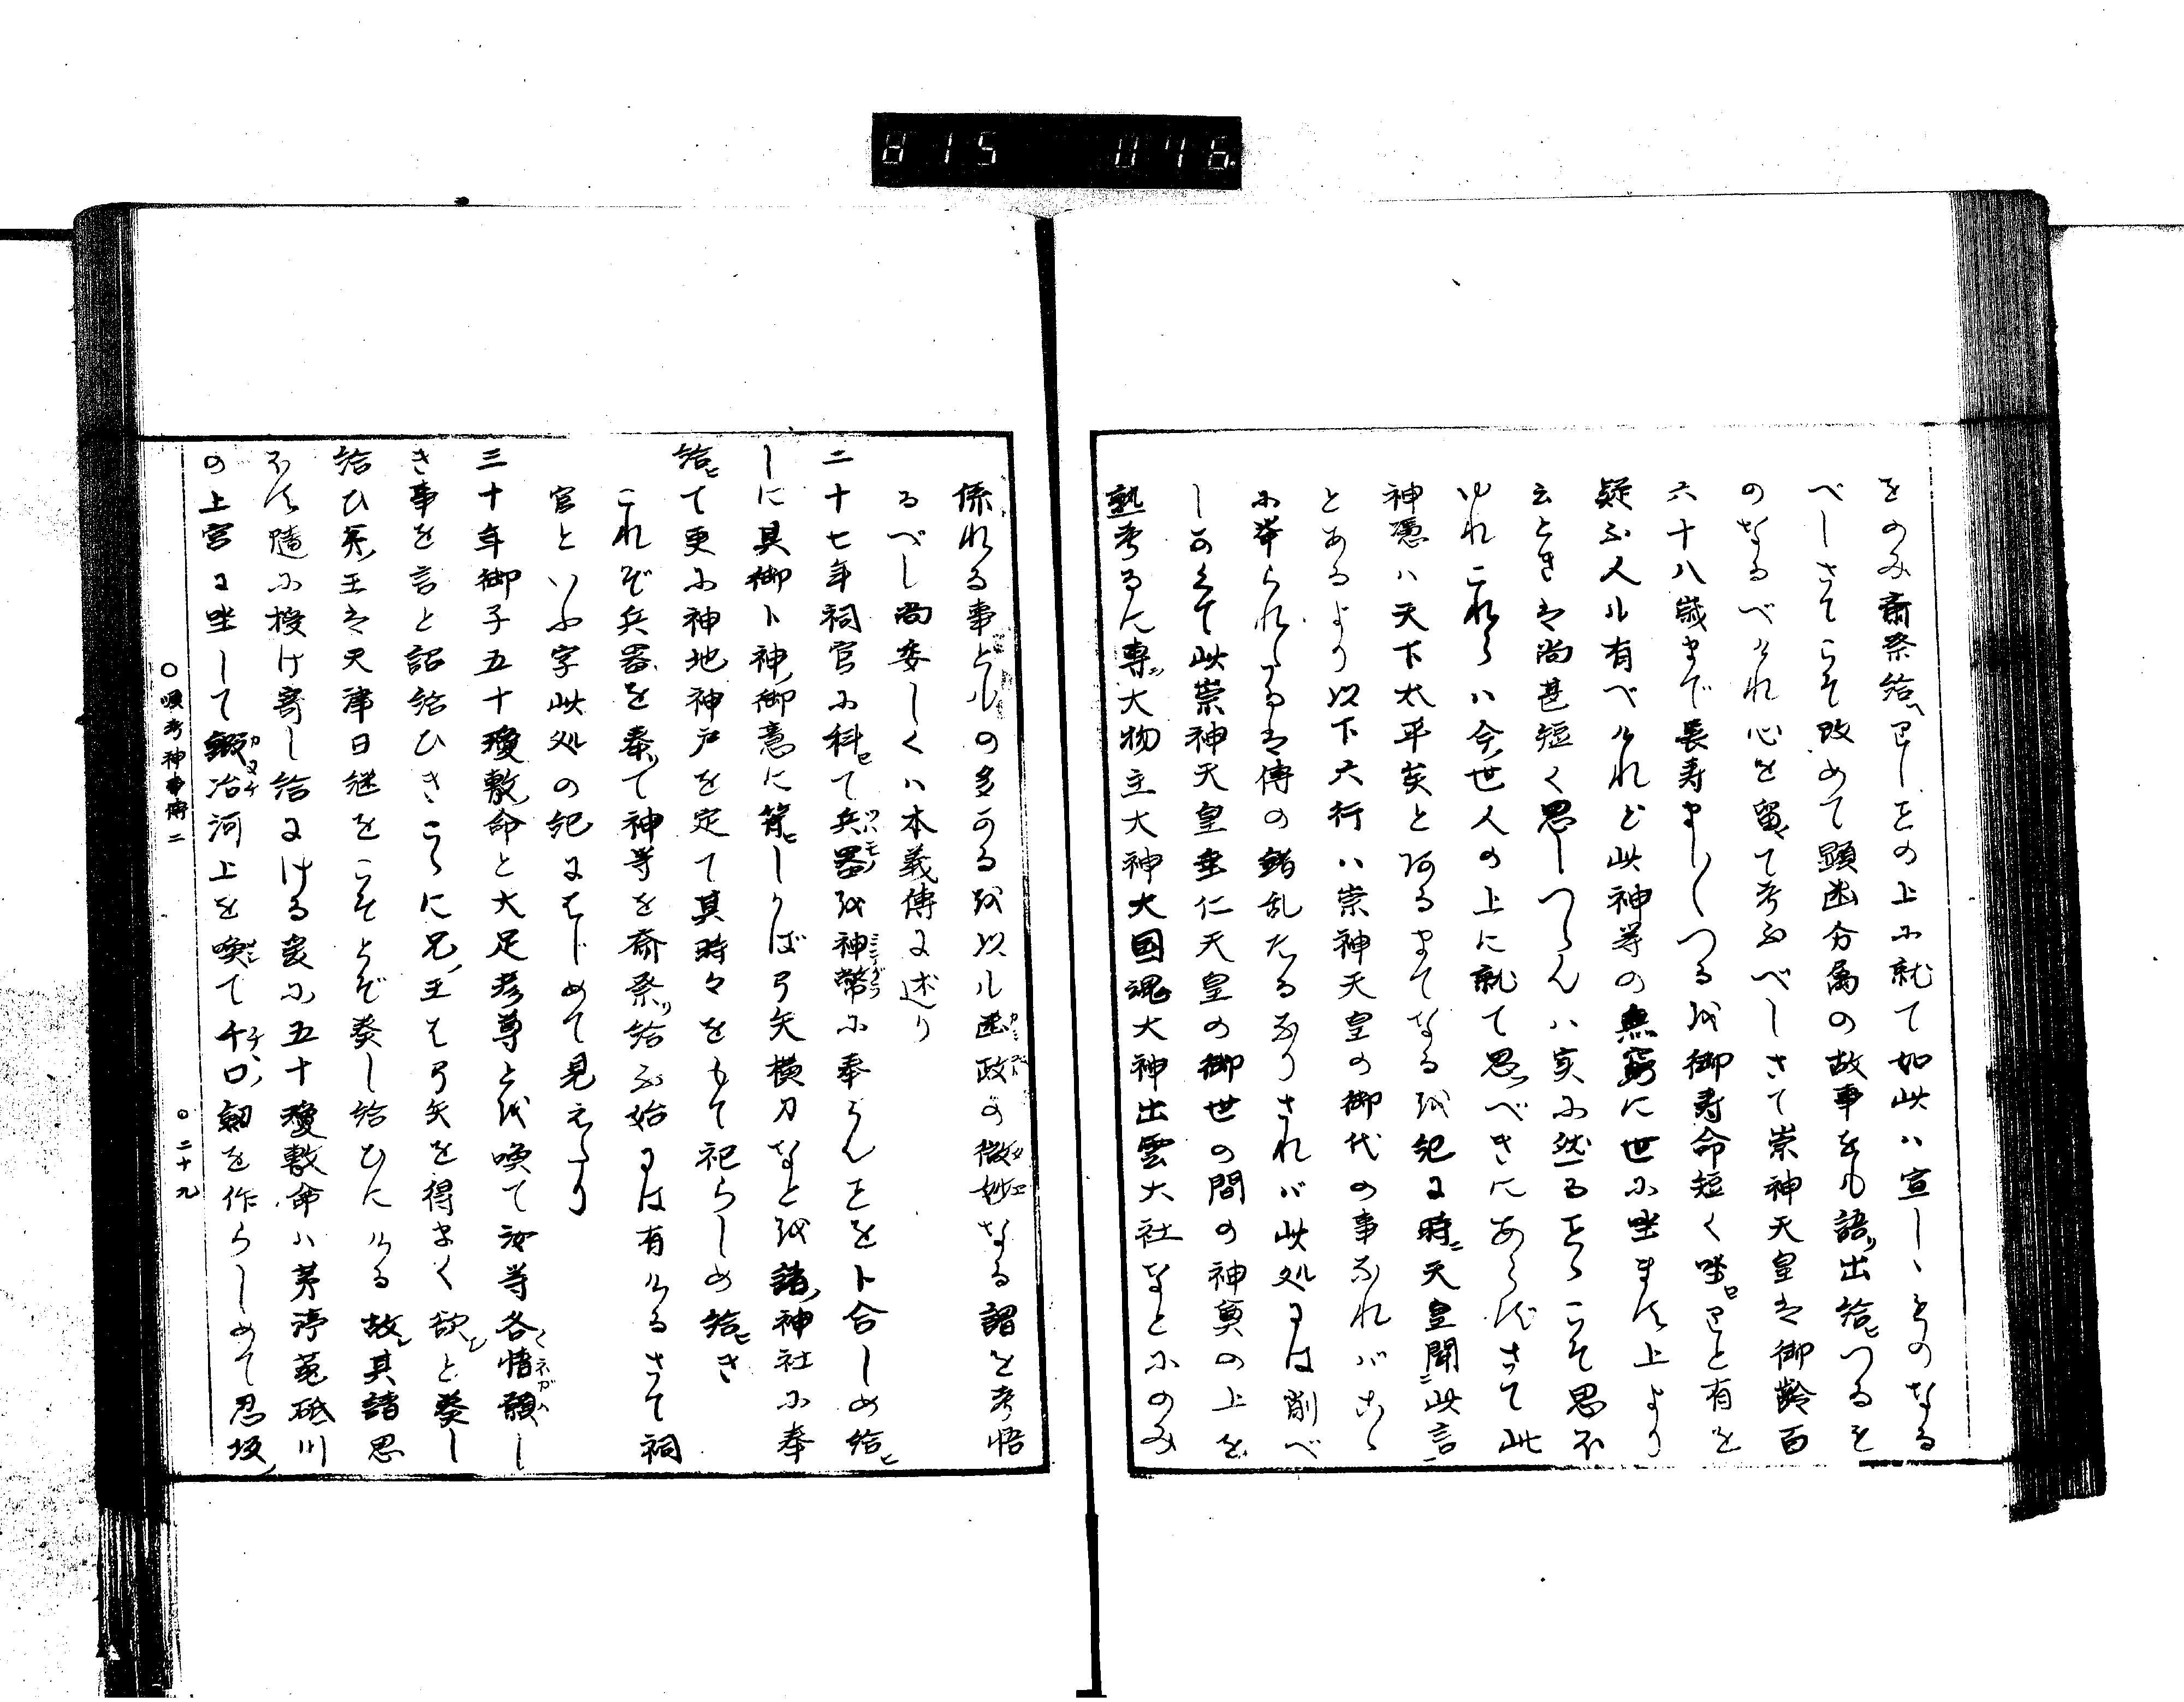 815 076
をのみ斎祭給へりしをの上に就て如此ハ宣しゝものなる
べしさてこそ改めて顕幽分属の故事をも語り出給ひつるを
のなるべけれ心を留て考ふべしさて崇神天皇は御齢百
六十八歳まで長寿ましゝつるを御寿命短く坐りと有を
疑ふ人も有べけれど此神等の無窮に世に坐ます上より
云ときは尚甚短く思しつらんハ実に然ることこそ思ほ
ゆれこれらハ今世人の上に就て思ふべきにあらずさて此
神憑ハ天下太平矣と阿るまてなるを紀に時ニ天皇聞ニ此言
とあるより以下六行ハ崇神天皇の御代の事なればこゝ
に挙られたるは傳の錯乱たるなりされバ此処には削べ
しかくて此崇神天皇垂仁天皇の御世の間の神異の上を
熟考るに専ら大物主大神大国魂大神出雲大社などにのみ
係れる事どもの多かるを以ても幽政の微妙なる謂を考悟
るべし尚委しくハ本義傳に述り
二十七年祠官に科て兵器を神幣に奉らんとを卜合しめ給ひ
しに其御卜神御意に背ひしかば弓矢横刀などを諸神社に奉
給ひて更に神地神戸を定て其時々をもて祀らしめ給ひき
これぞ兵器を奉て神等を斎祭り給ふ始には有けるさて祠
官といふ字此処の記にはじめて見えたり
三十年御子五十瓊敷命と大足彦尊とを喚て汝等各情願し
き事を言と詔給ひきこゝに兄王は弓矢を得まく欲と奏し
給ひ弟王は天津日継をこそとぞ奏し給ひにける故其諸思
ほす随に授け寄し給にける爰に五十瓊敷命ハ茅渟菟砥川
の上宮に坐して鍛冶河上を喚て千口剱を作らしめて忍坂
○順考神事傳二
○二十九